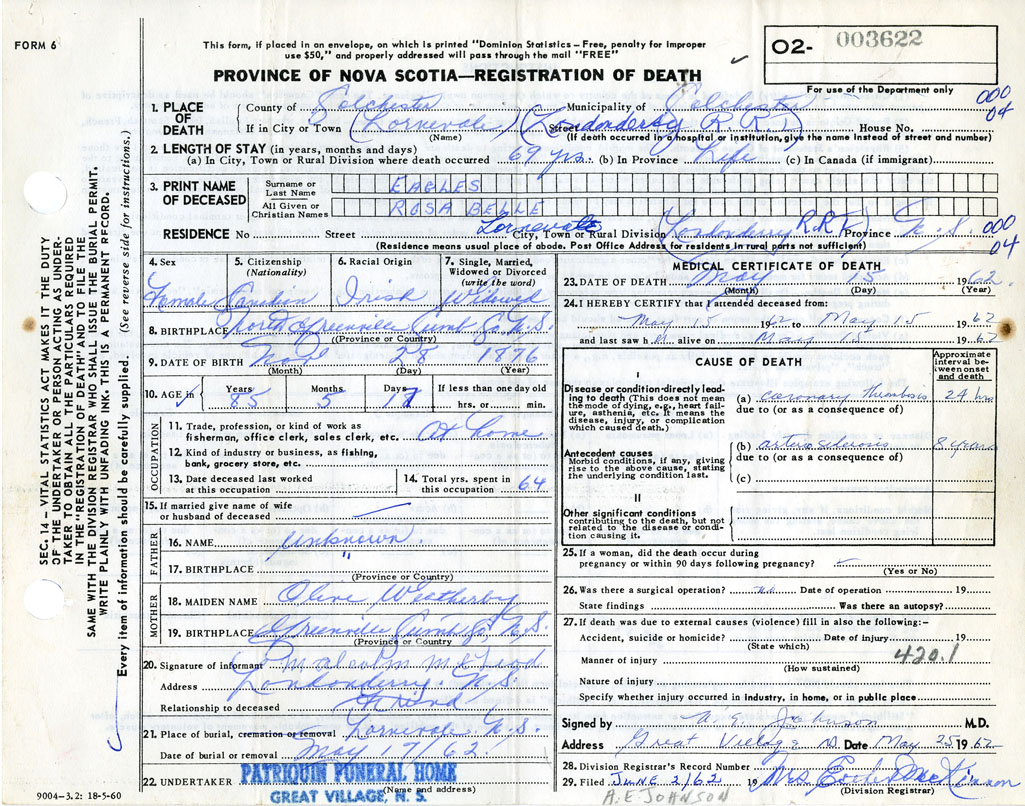 FORM 6
This form, if placed in an envelope, on which is printed "Dominion Statistics – Free, penalty for improper
use $50," and properly addressed will pass through the mail "FREE"
O2- 003622
PROVINCE OF NOVA SCOTIA—REGISTRATION OF DEATH
For use of the Department only
000
04
1. PLACE OF DEATH
County of Colchester Municipality of Colchester
If in City or Town (Lornevale) (Name) Street (Londonderry R.R.1) House No.
(If death occurred in a hospital or institution, give the name instead of street and number)
2. LENGTH OF STAY (in years, months and days)
(a) In City, Town or Rural Division where death occurred 69 yrs. (b) In Province Life (c) In Canada (if immigrant)
3. PRINT NAME OF DECEASED
Surname or Last Name EAGLES
All Given or Christian Names ROSA BELLE
RESIDENCE No Street Lornevale City, Town or Rural Division Londonderry R.R.1) Province N.S.
000
04
(Residence means usual place of abode. Post Office Address for residents in rural parts not sufficient)
4. Sex
Female
5. Citizenship
(Nationality)
Canadian
6. Racial Origin
Irish
7. Single, Married,
Widowed or Divorced
(write the word)
Widowed
8. BIRTHPLACE North Greenville Cumb Co. N.S.
(Province or Country)
9. DATE OF BIRTH 28 1876
(Month) (Day) (Year)
10. AGE in
Years 85
Months 5
Days
If less than one day old
hrs. or min.
OCCUPATION
11. Trade, profession, or kind of work as
fisherman, office clerk, sales clerk, etc. At home
12. Kind of industry or business, as fishing,
bank, grocery store, etc.
13. Date deceased last worked
at this occupation
14. Total yrs. spent in
this occupation 64
15. If married give name of wife
or husband of deceased
FATHER
16. NAME Unknown.
17. BIRTHPLACE "
(Province or Country)
MOTHER
18. MAIDEN NAME Olive Weatherby
19. BIRTHPLACE Greenville Cumb Co. N.S.
(Province or Country)
20. Signature of informant Malcolm
Address Londonderry. N.S.
Relationship to deceased friend
21. Place of burial, cremation or removal Lornevale N.S.
Date of burial or removal May 17/62.
22. UNDERTAKER PATRIQUIN FUNERAL HOME
(Name and address)
GREAT VILLAGE, N. S.
9004-3.2: 18-5-60
SEC. 14 – VITAL STATISTICS ACT MAKES IT THE DUTY
OF THE UNDERTAKER OR PERSON ACTING AS UNDER-
TAKER TO OBTAIN ALL THE PARTICULARS REQUIRED
IN THE "REGISTRATION OF DEATH" AND TO FILE THE
SAME WITH THE DIVISION REGISTRAR WHO SHALL ISSUE THE BURIAL PERMIT.
WRITE PLAINLY WITH UNFADING INK. THIS IS A PERMANENT RECORD.
Every item of information should be carefully supplied. (See reverse side for instructions.)
MEDICAL CERTIFICATE OF DEATH
23. DATE OF DEATH May 15 1962
(Month) (Day) (Year)
24. I HEREBY CERTIFY that I attended deceased from:
May 15 1962 to May 15 1962
and last saw h alive on May 15 1962
CAUSE OF DEATH
Approximate
interval be-
tween onset
and death
I
Disease or condition directly lead-
ing to death (This does not mean
the mode of dying, e.g., heart fail-
ure, asthenia, etc. It means the
disease, injury, or complication
which caused death.)
(a) coronary thrombosis 24 hrs
due to (or as a consequence of)
Antecedent causes
Morbid conditions, if any, giving
rise to the above cause, stating
the underlying condition last.
(b) arteriosclerosis 8 years
due to (or as a consequence of)
(c)
II
Other significant conditions
contributing to the death, but not
related to the disease or condi-
tion causing it.
25. If a woman, did the death occur during
pregnancy or within 90 days following pregnancy?
(Yes or No)
26. Was there a surgical operation? no Date of operation 19
State findings Was there an autopsy?
27. If death was due to external causes (violence) fill in also the following:-
Accident, suicide or homicide? Date of injury 19
(State which)
Manner of injury 420.1
(How sustained)
Nature of injury
Specify whether injury occurred in industry, in home, or in public place
Signed by A. E. Johnson M.D.
Address Great Village NS Date May 25 1962
28. Division Registrar's Record Number
29. Filed JUNE 2/62 19 Mrs McKinnon
(Division Registrar)
A.E JOHNSON